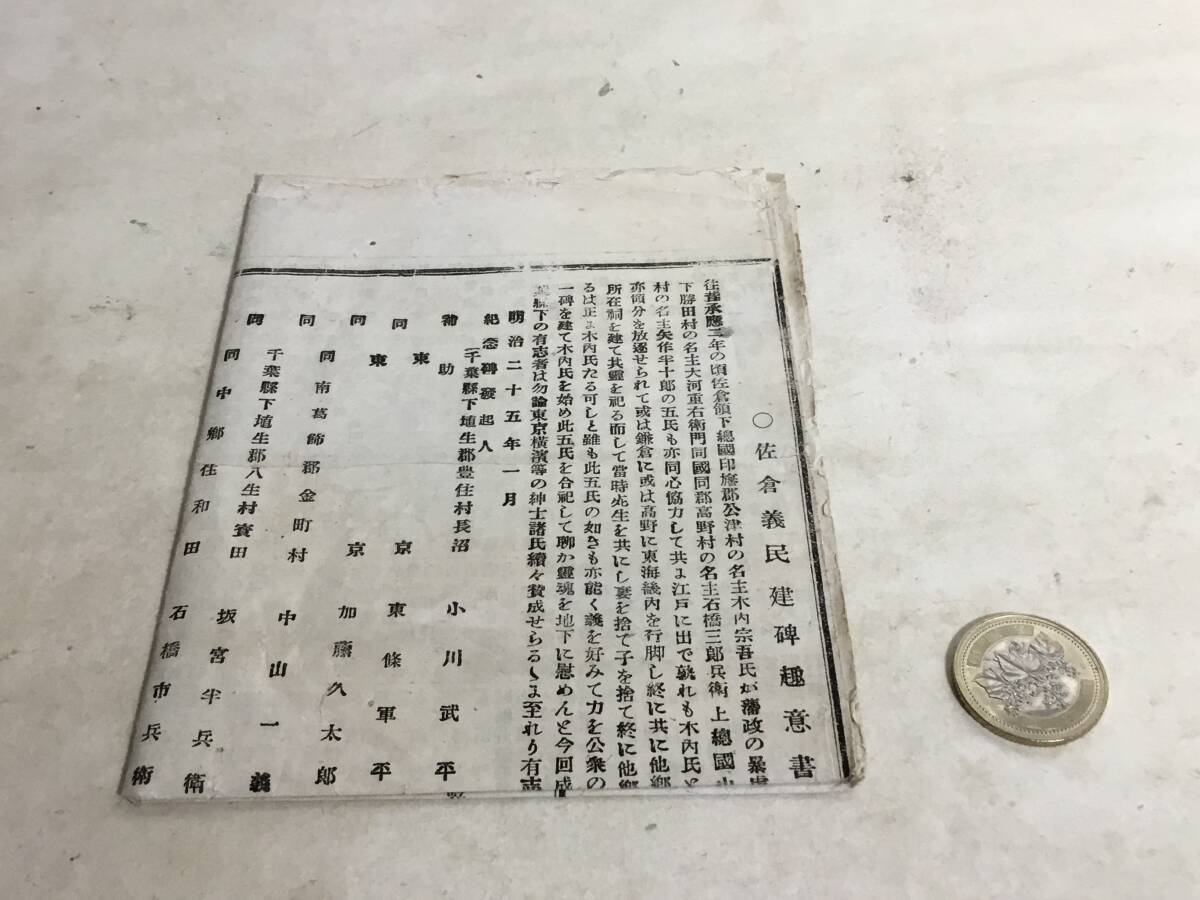 ○佐倉義民建碑趣意書
往昔承應三年の頃佐倉領下總國印旛郡公津村の名主木内宗吾氏が藩政の暴虐
下勝田村の名主大河重右衛門同國同郡高野村の名主石橋三郎兵衛上總國
村の名主矢作半十郎の五氏も亦同心協力して共よ江戸に出で孰れも木内氏と
亦領分を放逐せられて或は鎌倉に或は高野に東海畿内を行脚し終に共に他鄕
所在祠を建て其靈を祀る而して當時先生を共にし妻を捨て子を捨て終に他鄕
るは正よ木内氏たる可しと雖も此五氏の如きも亦能く義を好みて力を公衆の
一碑を建て木内氏を始め此五氏を合祀して聊か靈魂を地下に慰めんと今回成
縣下の有志者は勿論東京橫濱等の紳士諸氏續々賛成せらるゝよ至れり有志
明治二十五年一月
紀念碑發起人
千葉縣下埴生郡豊住村長沼 小川武平
補助 東京 東條軍平
同 東京 加藤久太郎
同 同南葛飾郡金町村 中山一義
同 千葉縣下埴生郡八生村寳田 坂宮半兵衛
同 同中鄕任和田 石橋市兵衛